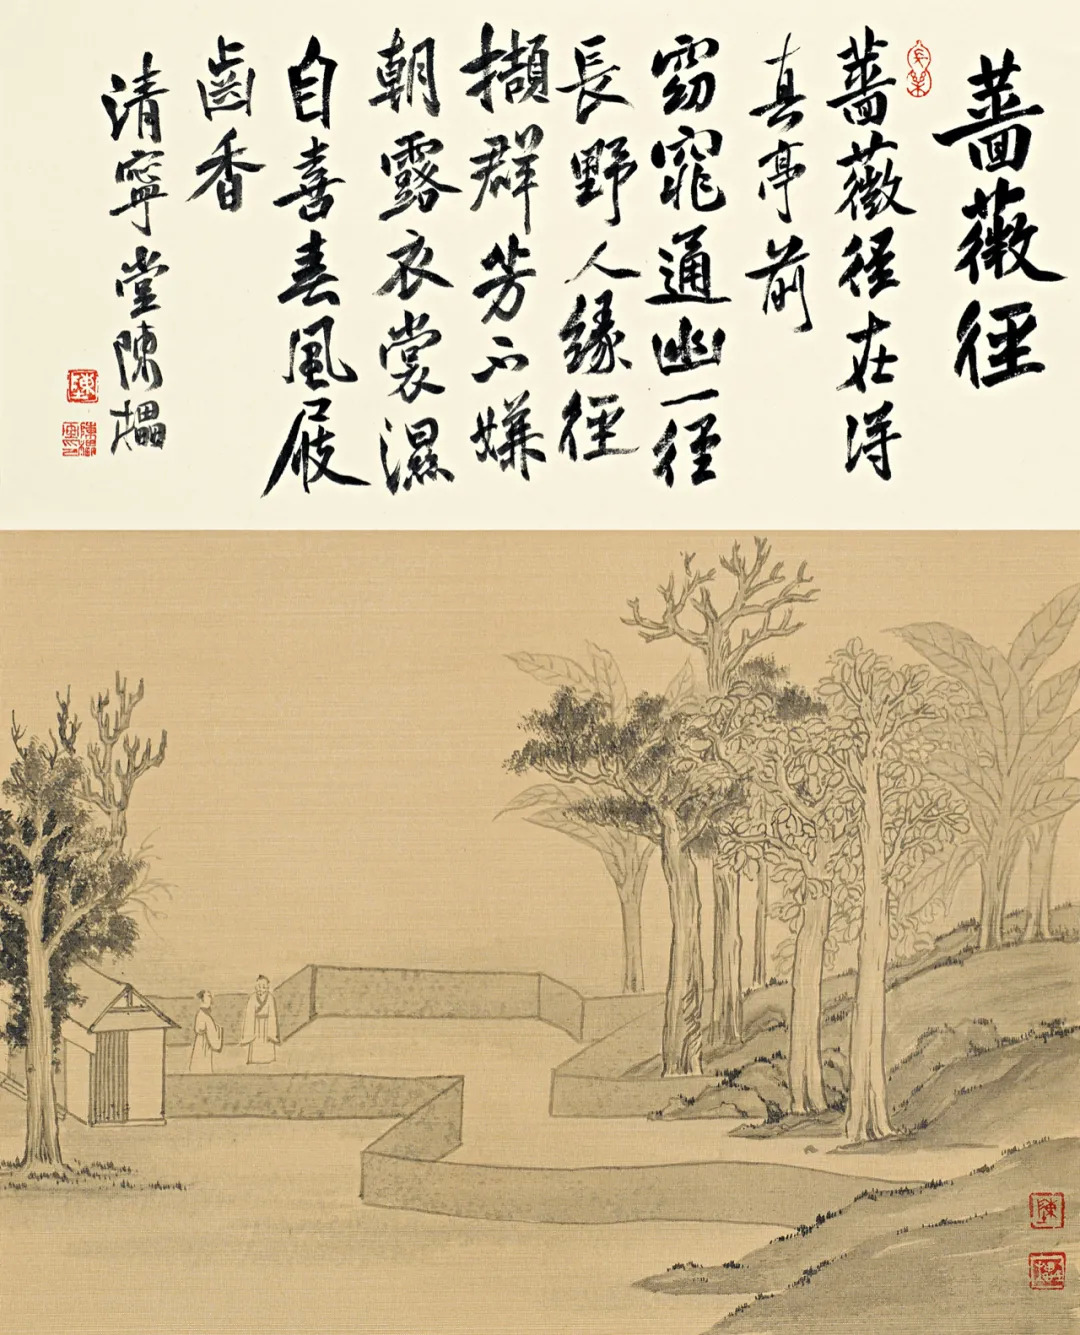 薔薇徑
薔薇徑在得
真亭前
窈窕通幽一徑
長野人緣徑
擷群芳不嫌
朝露衣裳濕
自喜春風屐
齒香
清寧堂陳
陳
陳